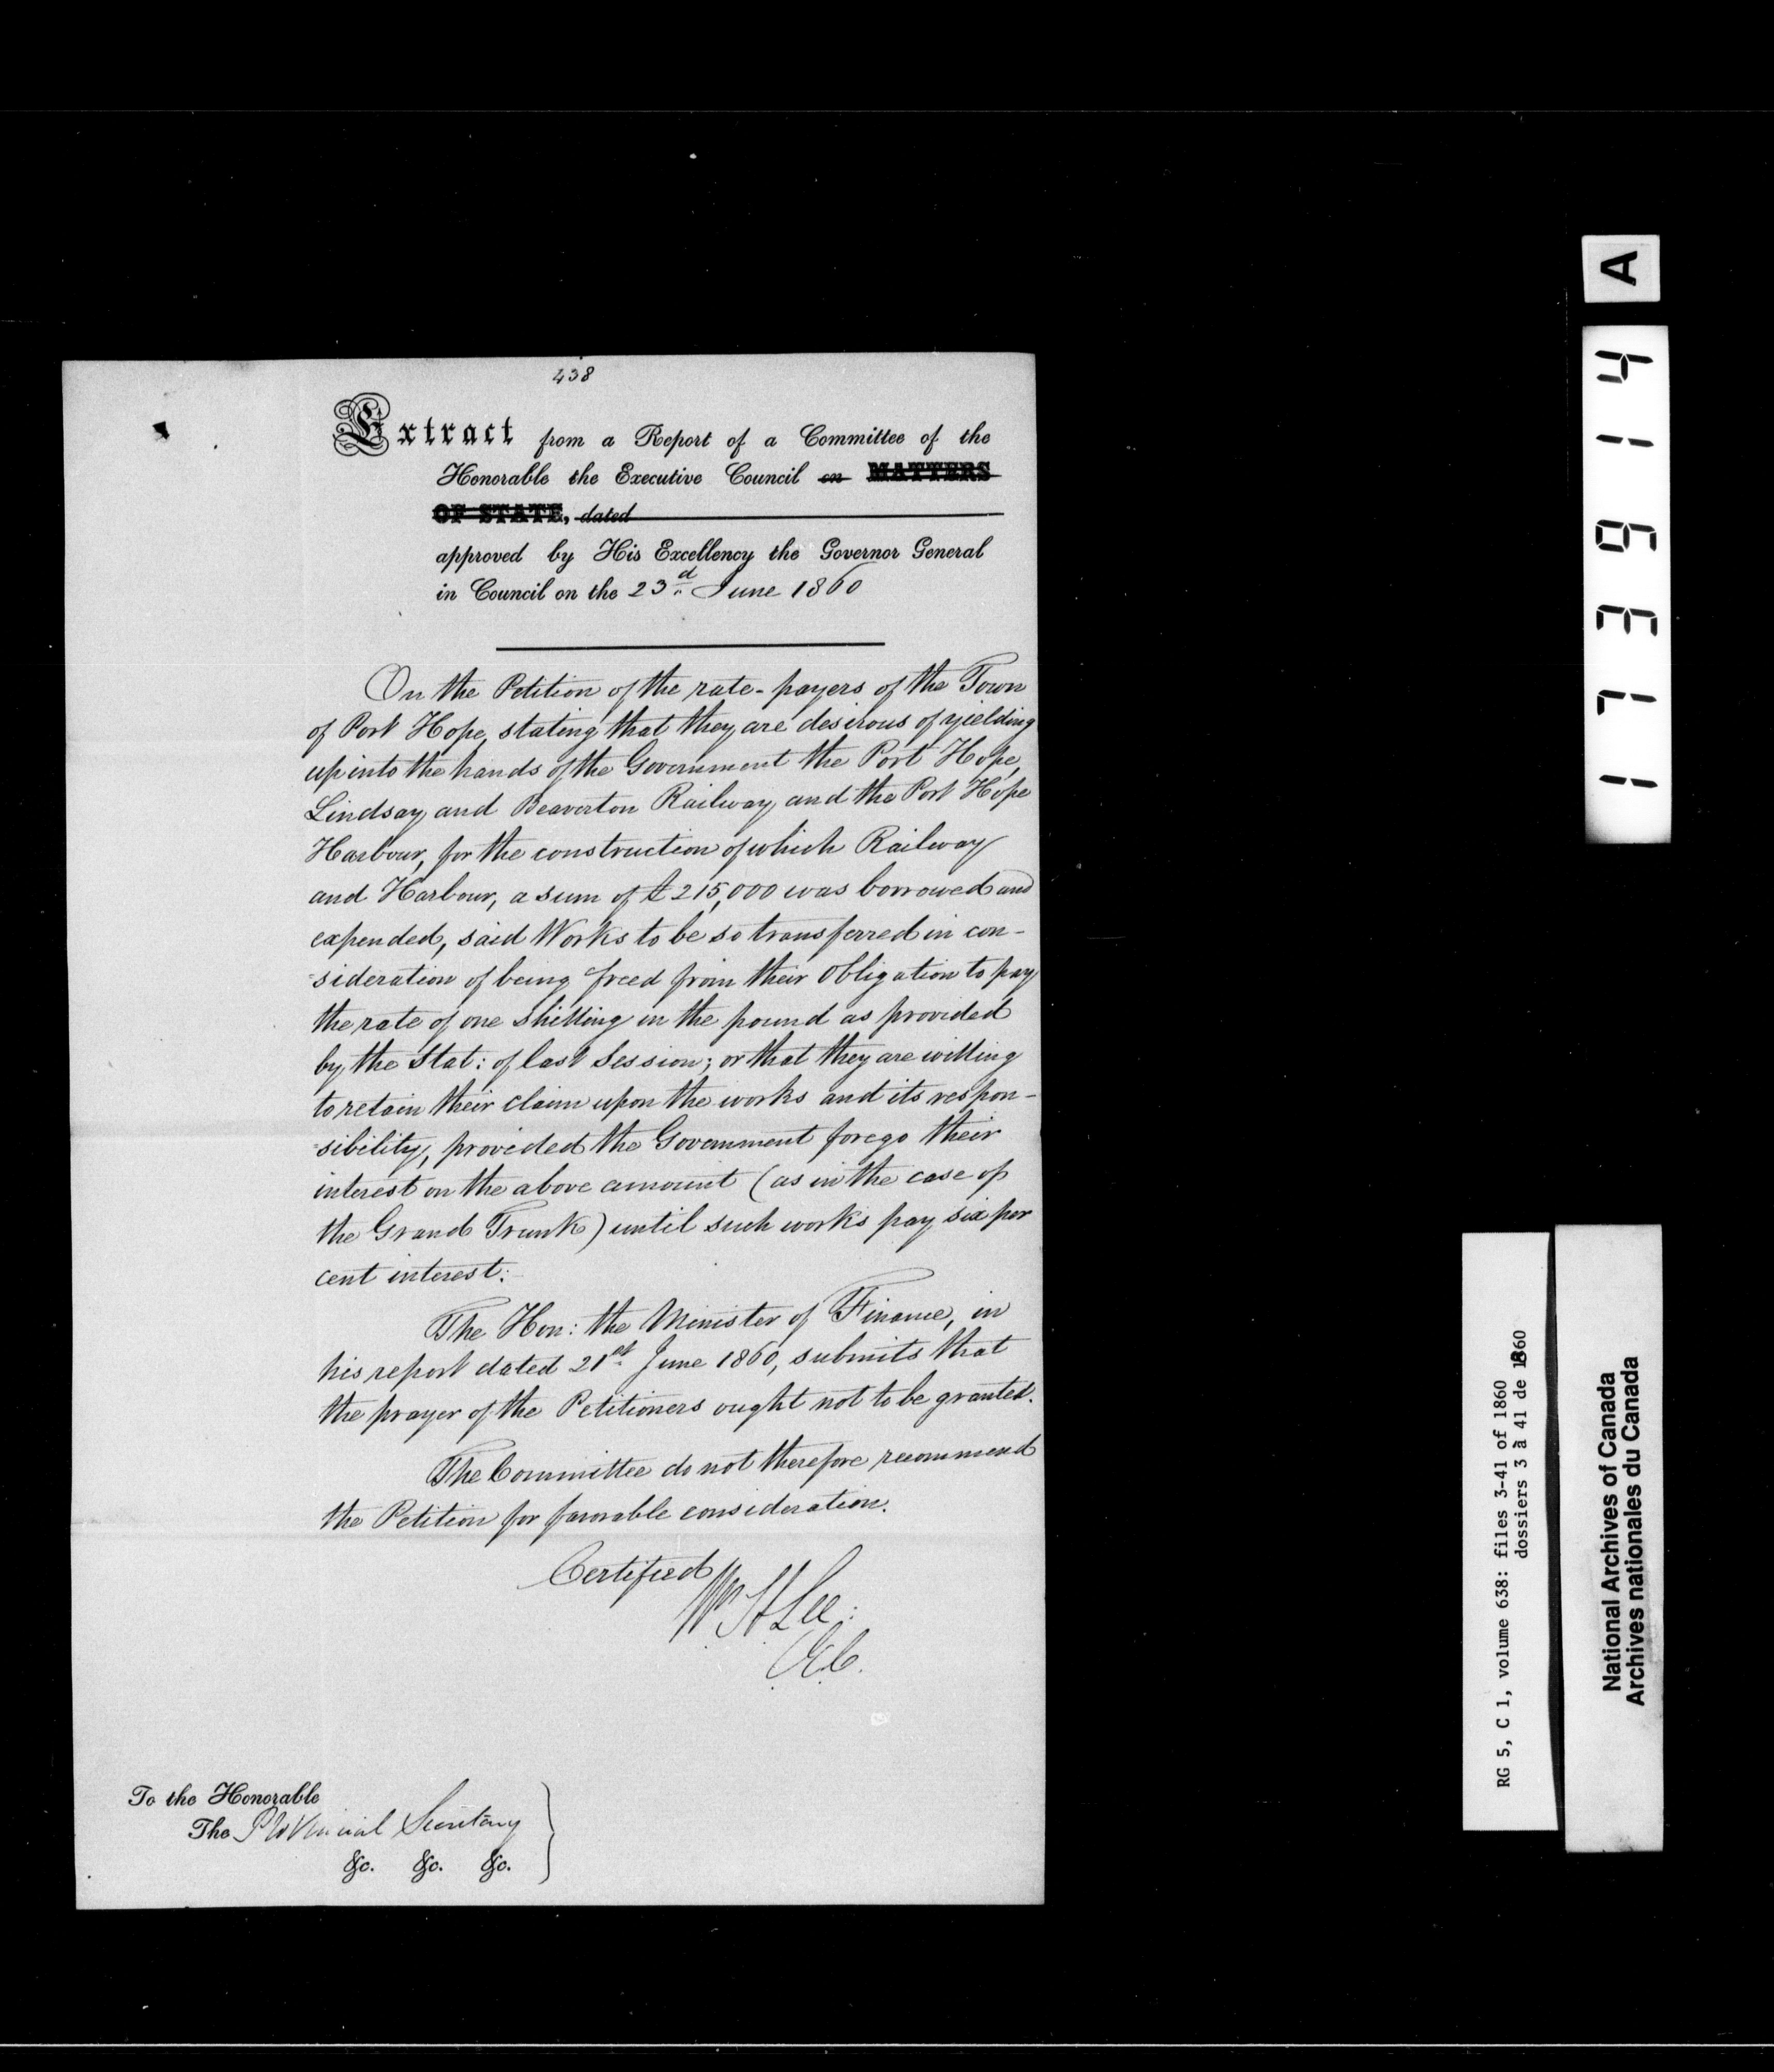 438
Extract from a Report of a Committee of the
Honorable the Executive Council on MATTERS
OF STATE, dated
approved by His Excellency the Governor General
in Council on the 23d June 1860
On the Petition of the rate-payers of the Town
of Port Hope, stating that they are desirous of yielding
up into the hands of the Government the Port Hope,
Lindsay and Beaverton Railway and the Port Hope
Harbour, for the construction of which Railway
and Harbour, a sum of £215,000 was borrowed and
expended, said Works to be so transferred in con-
-sideration of being freed from their obligation to pay
the rate of one shilling in the pound as provided
by the Stat: of last Session; or that they are willing
to retain their claim upon the works and its respon-
-sibility, provided the Government forego their
interest on the above amount (as in the case of
the Grand Trunk) until such works pay six per
cent interest:
The Hon: the Minister of Finance, in
his report dated 21st June 1860, submits that
the prayer of the Petitioners ought not to be granted.
The Committee do not therefore recommend
the Petition for favorable consideration.
Certified
Wm H Lee:
C.E.C.
To the Honorable
The Provincial Secretary
&c. &c. &c.
A
173614
RG 5, C 1, volume 638: files 3-41 of 1860
dossiers 3 à 41 de 1860
National Archives of Canada
Archives nationales du Canada